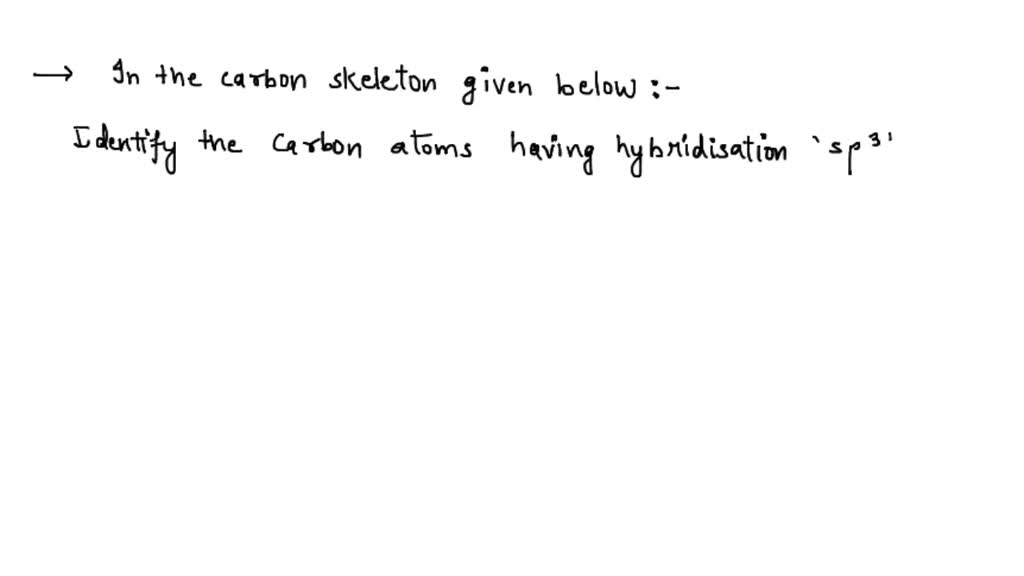 → In the carbon skeleton given below :-
Identify the carbon atoms having hybridisation 'sp³'